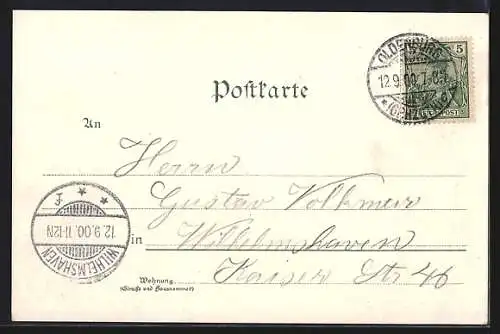 OLDENBURG
5
12.9.00.7-8V.
*(GRHZGTUM)*
REICHSPOST
Postkarte
An
Herrn
Gustav Volkmer
in Wilhelmshaven
Kaiser Str 46
Wohnung
(Straße und Hausnummer)
WILHELMSHAVEN
12.9.00.11-12N
* * f